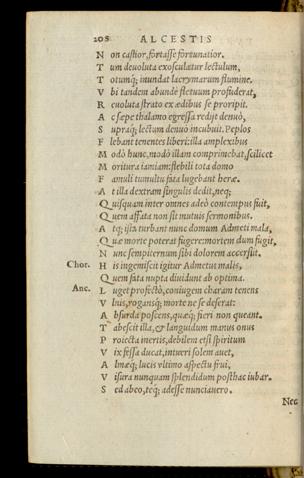 208 ALCESTIS
N on castior, fortasse fortunatior.
T um deuoluta exosculatur lectulum,
T otumq́; inundat lacrymarum flumine.
V bi tandem abundè fletuum profuderat,
R euoluta strato ex ædibus se proripit.
A c sæpe thalamo egressa redijt denuò,
S upraq́; lectum denuò incubuit. Peplos
F lebant tenentes liberi: illa amplexibus
M odò hunc, modò illam comprimebat, scilicet
M oritura iamiam: flebili tota domo
F amuli tumultu fata lugebant heræ.
A t illa dextram singulis dedit, neq;
Q uisquam inter omnes adeò contempus fuit,
Q uem affata non sit mutuis sermonibus.
A tq; ista turbant nunc domum Admeti mala,
Q uæ morte poterat fugere: mortem dum fugit,
N unc sempiternum sibi dolorem accersit.
Chor. H is ingemiscit igitur Admetus malis,
Q uem fata nupta diuidunt ab optima.
Anc. L uget profectò, coniugem charam tenens
V lnis, rogansq́; morte ne se deserat:
A bsurda poscens, quæq́; fieri non queant.
T abescit illa, & languidum manus onus
P roiecta inertis, debilem etsi spiritum
V ix fessa ducat, intueri solem auet,
A lmæq́; lucis vltimo aspectu frui,
V isura nunquam splendidum posthac iubar.
S ed abeo, teq́; adesse nunciauero.
Nec